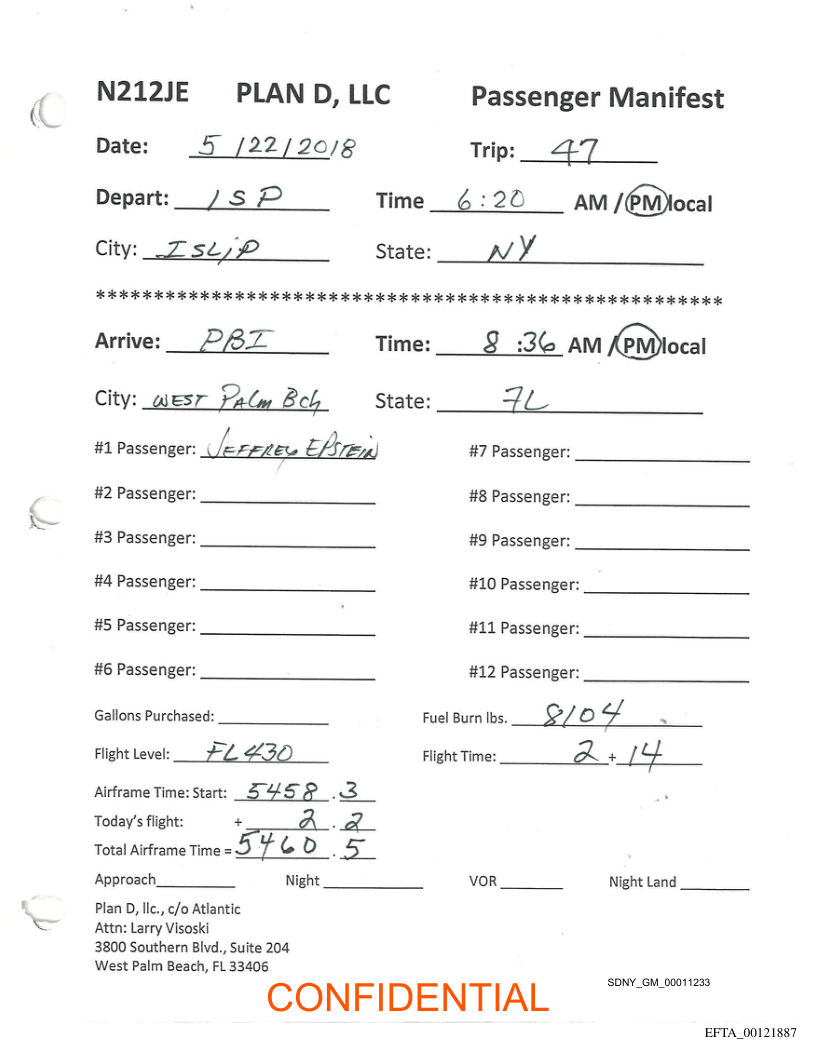 N212JE PLAN D, LLC Passenger Manifest
Date: 5/22/2018 Trip: 47
Depart: ISP Time 6:20 AM / PM local
City: ISLiP State: NY
******************************************************
Arrive: PBI Time: 8:36 AM / PM local
City: WEST PALm Bch State: FL
#1 Passenger: JEFFREY EPSTEiN #7 Passenger:
#2 Passenger: #8 Passenger:
#3 Passenger: #9 Passenger:
#4 Passenger: #10 Passenger:
#5 Passenger: #11 Passenger:
#6 Passenger: #12 Passenger:
Gallons Purchased: Fuel Burn lbs. 8104
Flight Level: FL430 Flight Time: 2 + 14
Airframe Time: Start: 5458.3
Today's flight: + 2.2
Total Airframe Time = 5460.5
Approach Night VOR Night Land
Plan D, llc., c/o Atlantic
Attn: Larry Visoski
3800 Southern Blvd., Suite 204
West Palm Beach, FL 33406
SDNY_GM_00011233
CONFIDENTIAL
EFTA_00121887